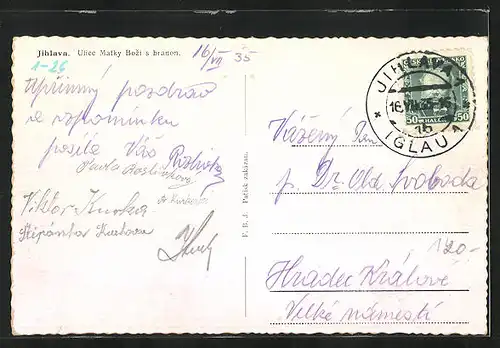 Jihlava. Ulice Matky Boží s branou.
16/VII 35
1-26
Upřímný pozdrav
ve vzpomínku
posílá Vás
Viktor Kurka
Štěpánka
F. B. J. Patisk zakázán.
JIHLAVA 1
16.VII.35
1b
IGLAU 1
50 50
Vážený Pan
p. Dr. Old. Svoboda
120-
Hradec Králové
Velké náměstí